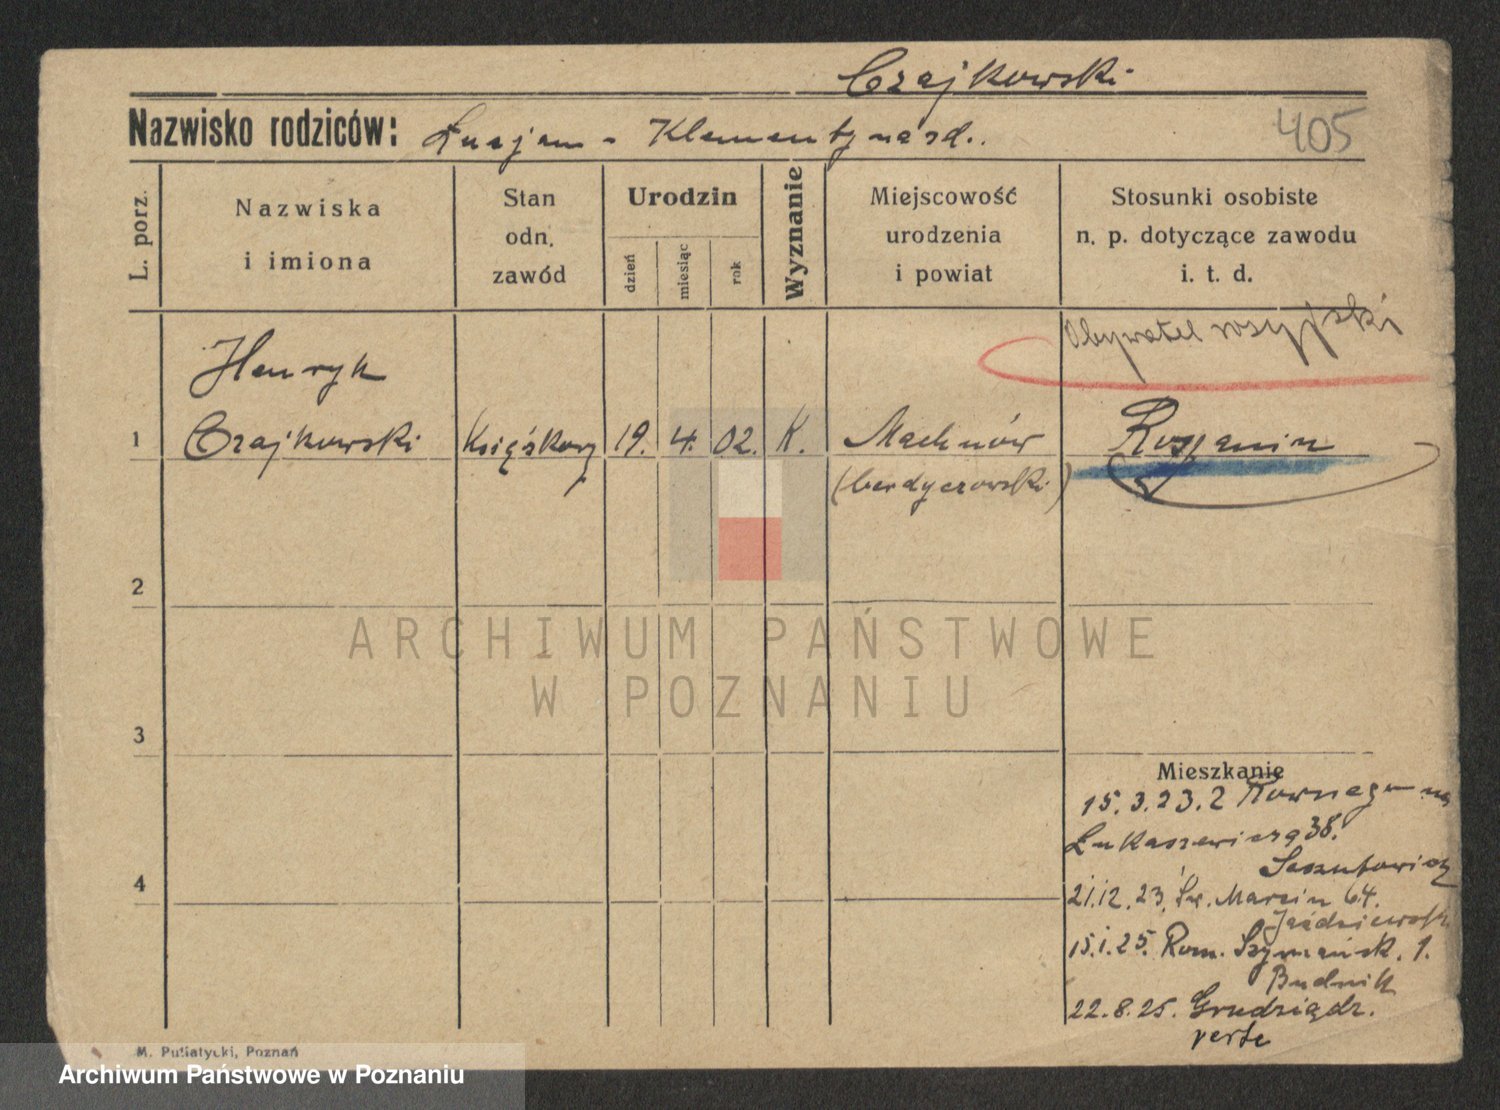 Czajkowski
Nazwisko rodziców: Lucjan - Klementyna rd..
405
L. porz.
Nazwiska
i imiona
Stan
odn.
zawód
Urodzin
dzień
miesiąc
rok
Wyznanie
Miejscowość
urodzenia
i powiat
Stosunki osobiste
n. p. dotyczące zawodu
i. t. d.
Obywatel rosyjski
Henryk
1 Czajkowski Książkowy 19. 4. 02. K. Machnów Rosjanin
(berdyczowski)
2
ARCHIWUM PAŃSTWOWE
W POZNANIU
3
Mieszkanie
15.3.23. z
Łukaszewicza 38.
4
21.12.23. Św. Marcin 64.
15.1.25. Rom. Szymańsk. 1.
Budnik
22.8.25. Grudziądz.
verte
M. Putiatycki, Poznań
Archiwum Państwowe w Poznaniu